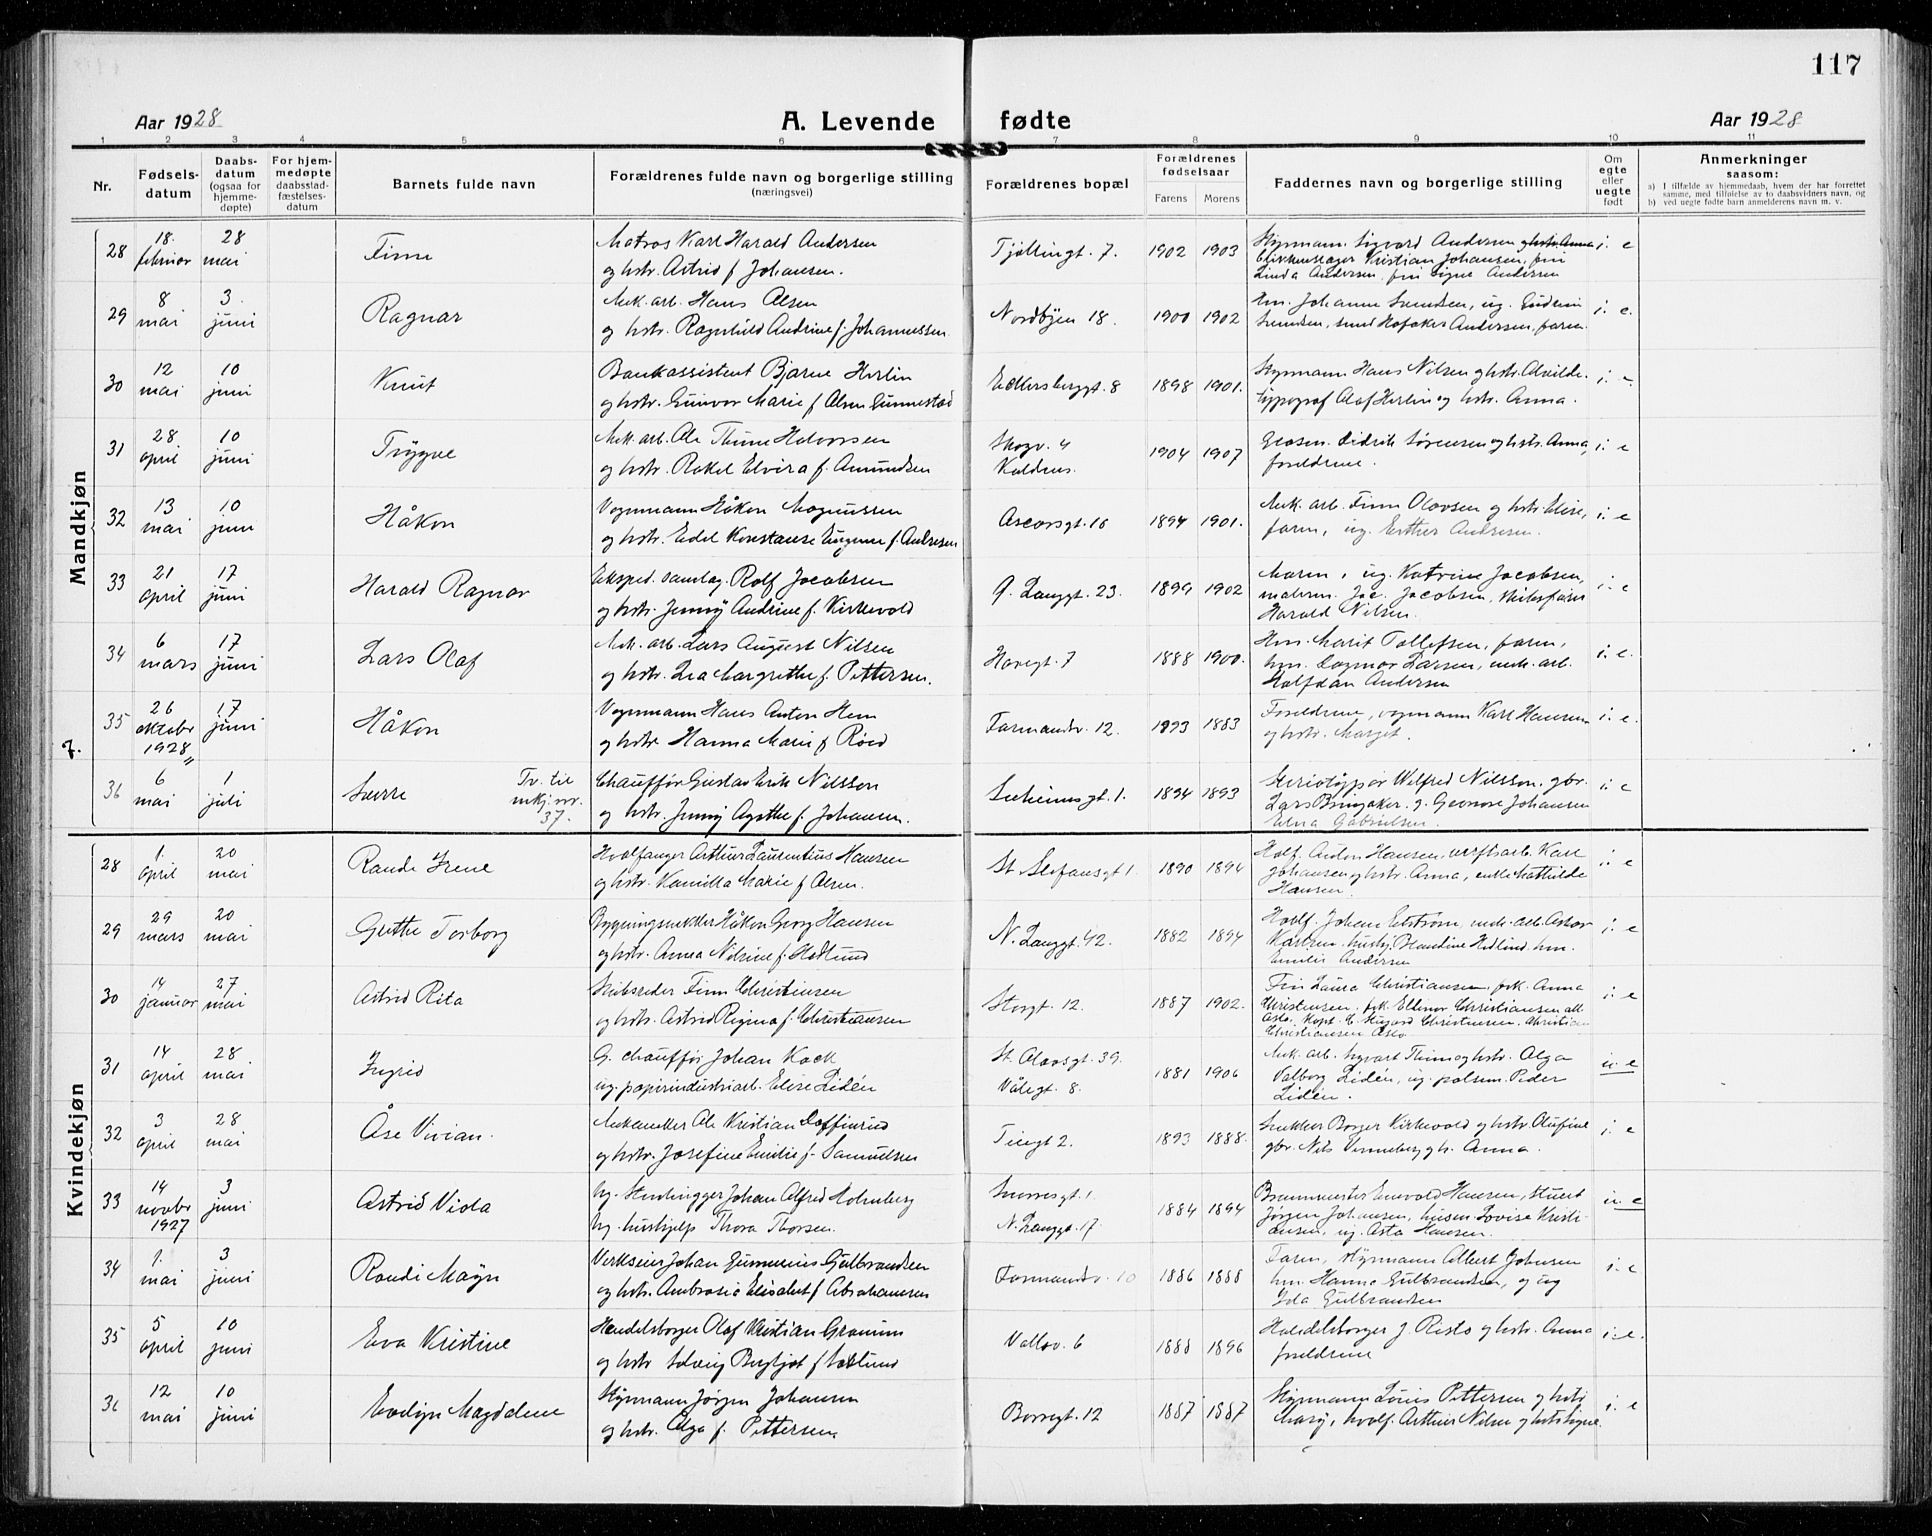 117
Aar 1928 A. Levende fødte Aar 1928
1 2 3 4 5 6 7 8 9 10 11
Nr.
Fødsels-
datum
Daabs-
datum
(ogsaa for
hjemme-
døpte)
For hjem-
medøpte
daabsstad-
fæstelses-
datum
Barnets fulde navn
Forældrenes fulde navn og borgerlige stilling
(næringsvei)
Forældrenes bopæl
Forældrenes
fødselsaar
Farens Morens
Faddernes navn og borgerlige stilling
Om
egte
eller
uegte
født
Anmerkninger
saasom:
a) I tilfælde av hjemmedaab, hvem der har forrettet
samme, med tilføielse av to daabsvidners navn, og
b) ved uegte fødte barn anmelderens navn m. v.
Mandkjøn
28 18. februar 28 mai Finn
Matros Karl Harald Andersen
og hstr. Astrid f. Johansen.
Tjøllingt. 7. 1902 1903
Styrmann Sigvard Andersen og hstr. Anna
Kristian Johansen, frk.
Linda Andersen, frk. Signe Andersen
i. e
29 8 mai 3. juni Ragnar
Mek. arb. Hans Olsen
og hstr. Ragnhild Andrine f. Johannessen
Nordbyen 18. 1900 1902
hm. Johanne Svendsen, ug.
Svendsen, Andersen, faren.
i. e.
30 12 mai 10 juni Knut
Bankassistent Bjarne Herlin
og hstr. Gunvor Marie f. Olsen Gunnestad
gt. 8 1898 1901.
Styrmann Hans Nilsen og hstr. Alvilde.
typograf Olaf Herlin og hstr. Anna.
i. e.
31 28 april 10 juni Trygve
Mek. arb. Ole Thune Halvorsen
og hstr. Rakel Elvira f. Amundsen
Skogv. 4
1904 1907
Didrik Sørensen og hstr. Anna,
foreldrene.
i. e
32 13 mai 10 juni Håkon
Vognmann Håkon Magnussen
og hstr. Edel Konstanse Eugenie f. Andresen
gt. 16 1894 1901.
Mek. arb. Finn Olavsen og hstr. Elise,
faren, ug. Esther Andresen.
i. e
33 21 april 17 juni Harald Ragnar
Eksped. samlag. Rolf Jacobsen
og hstr. Jenny Andrine f. Kirkevold
Ø. Langgt. 23. 1899 1902
Moren, ug. Katrine Jacobsen,
malerm. Jac. Jacobsen,
Harald Nilsen.
i. e
34 6 mars 17 juni Lars Olaf
Mek. arb. Lars August Nilsen
og hstr. Lea Margrethe f. Pettersen.
Havegt. 7 1888 1900.
Hm. Marit Tollefsen, faren,
hm. Dagmar Larsen, mek. arb.
Halfdan Andersen
i. e.
7.
35 26 oktober 1928 17 juni Håkon
Vognmann Hans Anton Hem
og hstr. Hanna Marie f. Røed
Farmandsv. 12. 1893 1883
Foreldrene, vognmann Karl Hansen
og hstr. Margit.
i. e.
36 6 mai 1 juli Sverre
Tv. til
mkj. nr.
37.
Chauffør Gustav Erik Nilsson
og hstr. Jenny Agathe f. Johansen.
Solheimsgt. 1. 1894 1893
Stereotypør Wilfred Nilsson, gbr.
Lars Bringaker, g. Johansen
Edna Gabrielsen.
i. e
Kvindekjøn
28 1. april 20 mai Randi Irene
Hvalfanger Arthur Laurentius Hansen
og hstr. Kamilla Marie f. Olsen.
St. Olofsgt 1. 1890 1894
Hvalf. Anton Hansen, verftsarb. Karl
Johansen og hstr. Anna, enke Mathilde
Hansen.
i. e
29 29 mars 20 mai Grethe Torborg
Bygningssnekker Håkon Georg Hansen
og hstr. Anna Nilsine f. Hedlund
N. Langgt. 42. 1882 1894
Hvalf. Johan mek. arb. Oskar
Karlsen, hushj. Blandine Hedlund, hm.
Emilie Andersen
i. e
30 14 januar 27 mai Astrid Rita
Skibsreder Finn Christensen
og hstr. Astrid Regina f. Christiansen
Storgt. 12. 1887 1902.
Frk. Laura Christiansen, frk. Anna
Christensen, frk. Ellinor Christiansen all
Oslo. Kapt. C. Christensen. Christian
Christiansen Oslo
i. e
31 14 april 28 mai Ingrid
G. chauffør Johan Kock
ug. papirindustriarb. Elise Lidén
St. Olavsgt. 39.
Vålegt. 8. 1881 1906
Mek. arb. og hstr. Olga
Valborg Lidén, ug. pølsem. Peder
Lidén.
u. e
32 3 april 28 mai Åse Vivian.
Mekaniker Ole Kristian Loffinrud
og hstr. Josefine Emilie f. Samuelsen
Tinegt 2. 1893 1888.
Snekker Borger Kirkevold og hstr. Olufine
gbr. Nils Venneberg og h. Anna.
i. e
33 14 novbr 1927 3 juni Astrid Viola
Ug. Stenhugger Johan Alfred Holmberg
Ug. hushjelp Thora Thorsen.
Snorresgt. 1.
N. Langgt. 17 1884 1894
Brannmester Hansen, stuert
Jørgen Johansen, husm. Lovise Kristi-
ansen, ug. Asta Hansen.
u. e
34 1. mai 3 juni Randi Mayn
Verkseier Johan Gunnerius Gulbrandsen
og hstr. Ambrosia Elisabet f. Abrahamsen
Farmandsv. 10 1886 1888
Faren, styrmann Albert Johnsen
hm. Hanna Gulbrandsen, og ug
Ida Gulbrandsen
i. e
35 5 april 10 juni Eva Kristine
Handelsborger Olaf Kristian Granum
og hstr Solveig Bergljot f. Søklund
Valløv. 6 1888 1896
Handelsborger J. Risto og hstr. Anna
foreldrene
i. e.
36 12 mai 10 juni Evelyn Magdalene
Styrmann Jørgen Johansen
og hstr. Olga f. Pettersen
Borregt. 12 1887 1887
Styrmann Louis Pettersen og hstr.
Mary, hvalf. Arthur Nilsen og hstr. Signe.
i. e